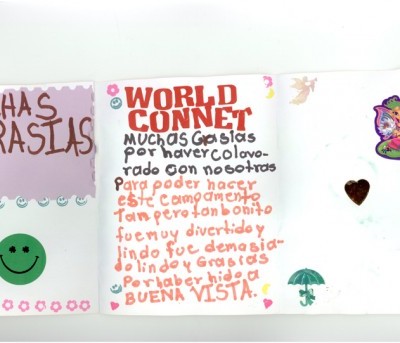 HAS
RASIAS
WORLD
CONNET
MUCHAS Grasias
por haver colavo-
rado con nosotras
Para poder hacer
este campamento
Tam pero tan bonito
fue muy divertido y
lindo fue demasia-
do lindo y Grasias
Por haber hido a
BUENA VISTA.